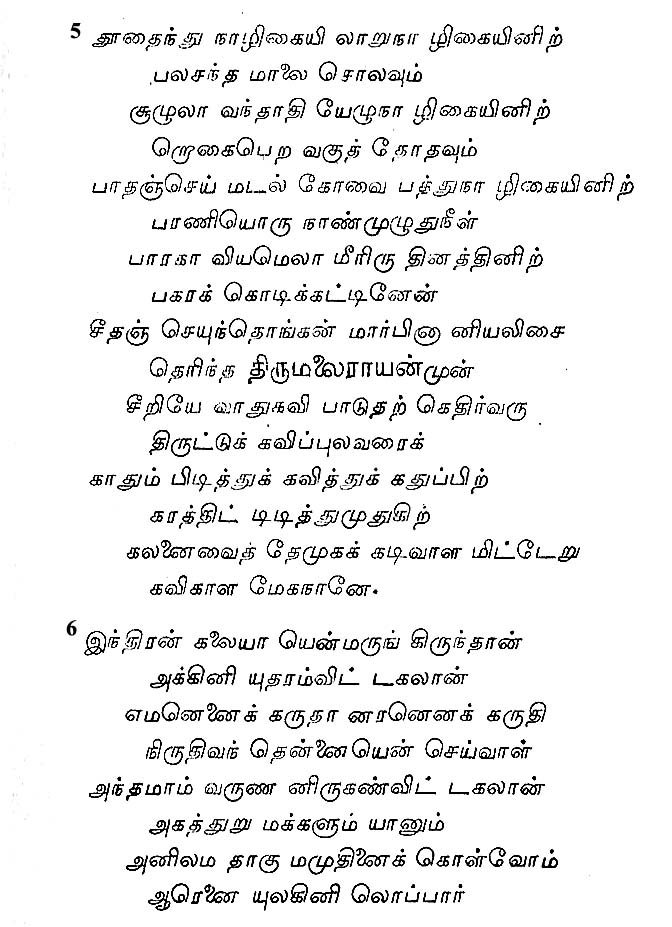 5 தூதைந்து நாழிகையி லாறுநா ழிகையினிற்
பலசந்த மாலை சொலவும்
சூழுலா வந்தாதி யேழுநா ழிகையினிற்
றொகைபெற வகுத் தோதவும்
பாதஞ்செய் மடல் கோவை பத்துநா ழிகையினிற்
பாணியொரு நாண்முழுதுநீள்
பாரகா வியமெலா மீரிரு தினத்தினிற்
பகரக் கொடிக்கட்டினேன்
சீதஞ் செயுந்தொங்கன் மார்பினா னியலிசை
தெரிந்த திருமலைராயன்முன்
சீறியே வாதுகவி பாடுதற் கெதிர்வரு
திருட்டுக் கவிப்புலவரைக்
காதும் பிடித்துக் கவித்துக் கதுப்பிற்
கரத்திட் டிடித்துமுதுகிற்
கலனைவைத் தேமுகக் கடிவாள மிட்டேறு
கவிகாள மேகநானே.
6 இந்திரன் கலையா யென்மருங் கிருந்தான்
அக்கினி யுதரம்விட் டகலான்
எமனெனைக் கருதா னரனெனக் கருதி
நிருதிவந் தென்னையென் செய்வாள்
அந்தமாம் வருண னிருகண்விட் டகலான்
அகத்துறு மக்களும் யானும்
அனிலம தாகு மமுதினைக் கொள்வோம்
ஆரெனை யுலகினி லொப்பார்